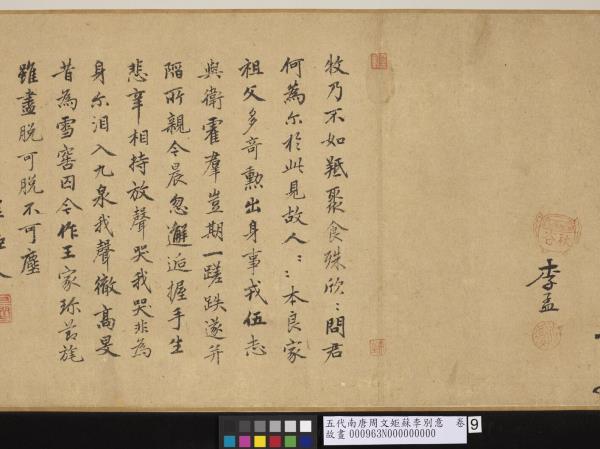 李孟
牧乃不如羝聚食殊欣：問君
何為尔於此見故人：：本良家
祖父多奇勲出身事戎伍志
與衛霍羣豈期一蹉跌遂并
陷所親今晨忽邂逅握手生
悲辛相持放聲哭我哭非為
身尔泪入九泉我聲徹高旻
昔為雪窖囚今作王家珎節旄
雖盡脱可脱不可塵
五代南唐周文矩蘇李別意 卷
故畫 000963N000000000
9